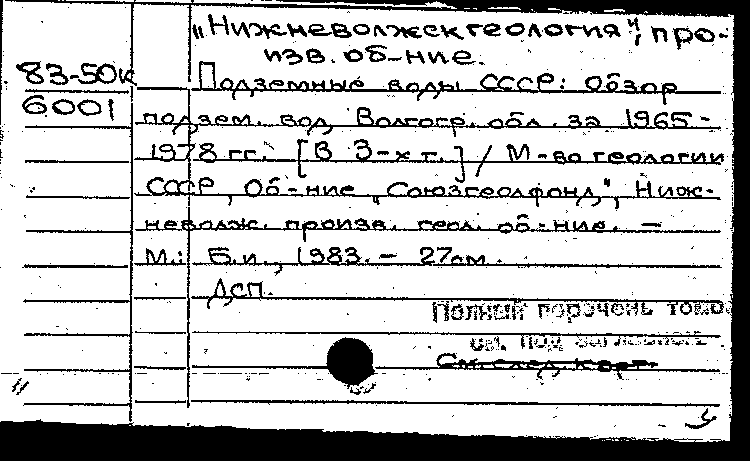 „Нижневолжскгеология", про-
изв. об-ние.
83-50к
6001
Подземные воды СССР: Обзор
подзем. вод Волгогр. обл. за 1965-
1978 гг. [В 3-х т.] / М-во геологии
СССР, Об-ние „Союзгеолфонд", Ниж-
неволж. произв. геол. об-ние. —
М.: Б.и., 1983. - 27см.
Дсп.
Полный перечень томов
см. под заглавием
См. след. карт.